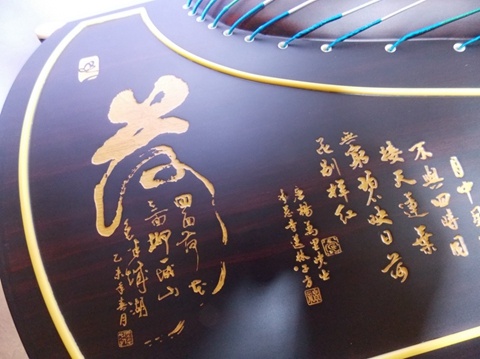 月中
不與四時同
接天蓮葉
無窮碧映日荷
花別樣紅
唐楊萬里
荷
四面荷花
三面柳一城山
色半城湖
乙未年春月